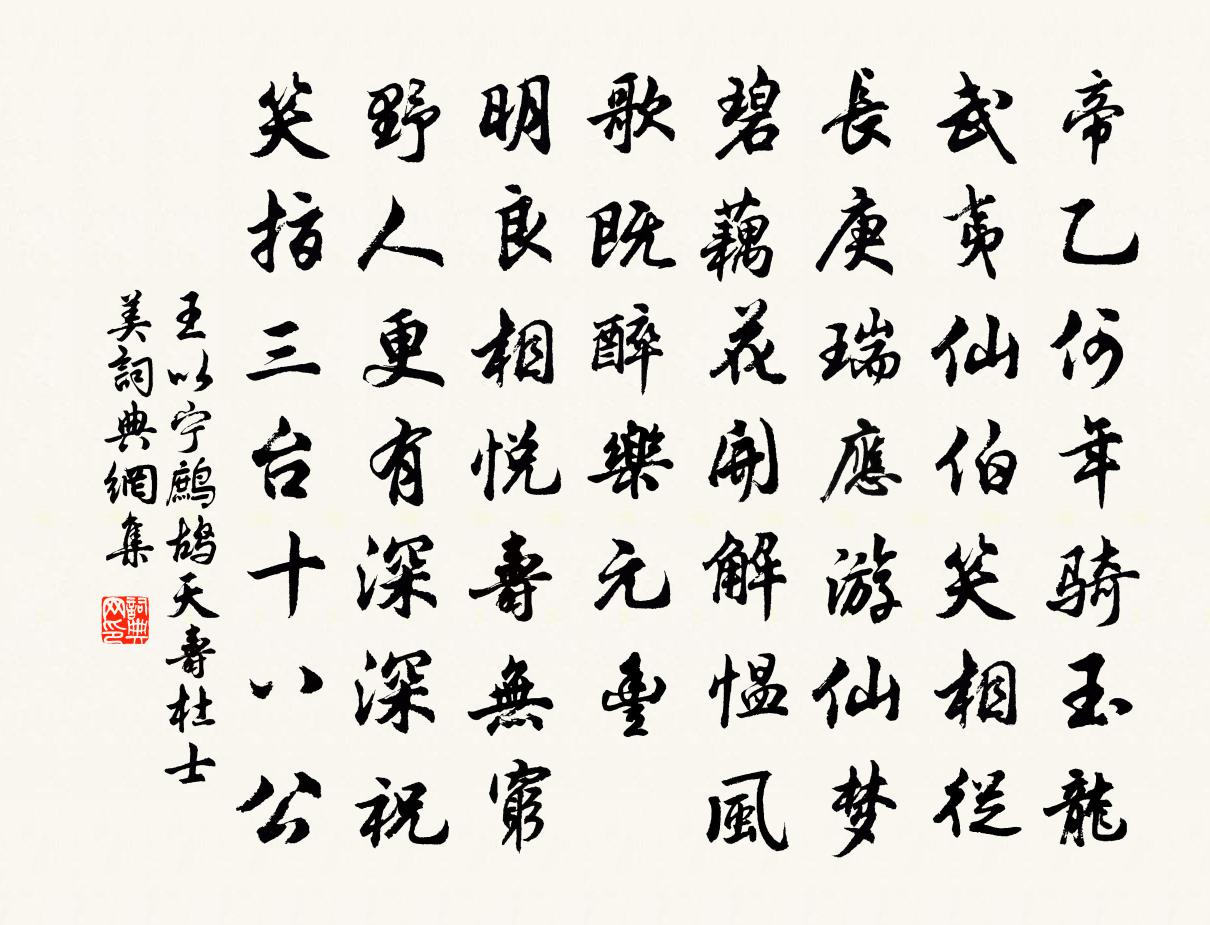 帝乙何年骑玉龍
武夷仙伯笑相從
長庚瑞應游仙梦
碧藕花開解愠風
歌既醉樂元豊
明良相悦壽無窮
野人更有深深祝
笑指三台十八公
王以宁鷓鴣天壽杜士
美詞典網集
詞典
网印